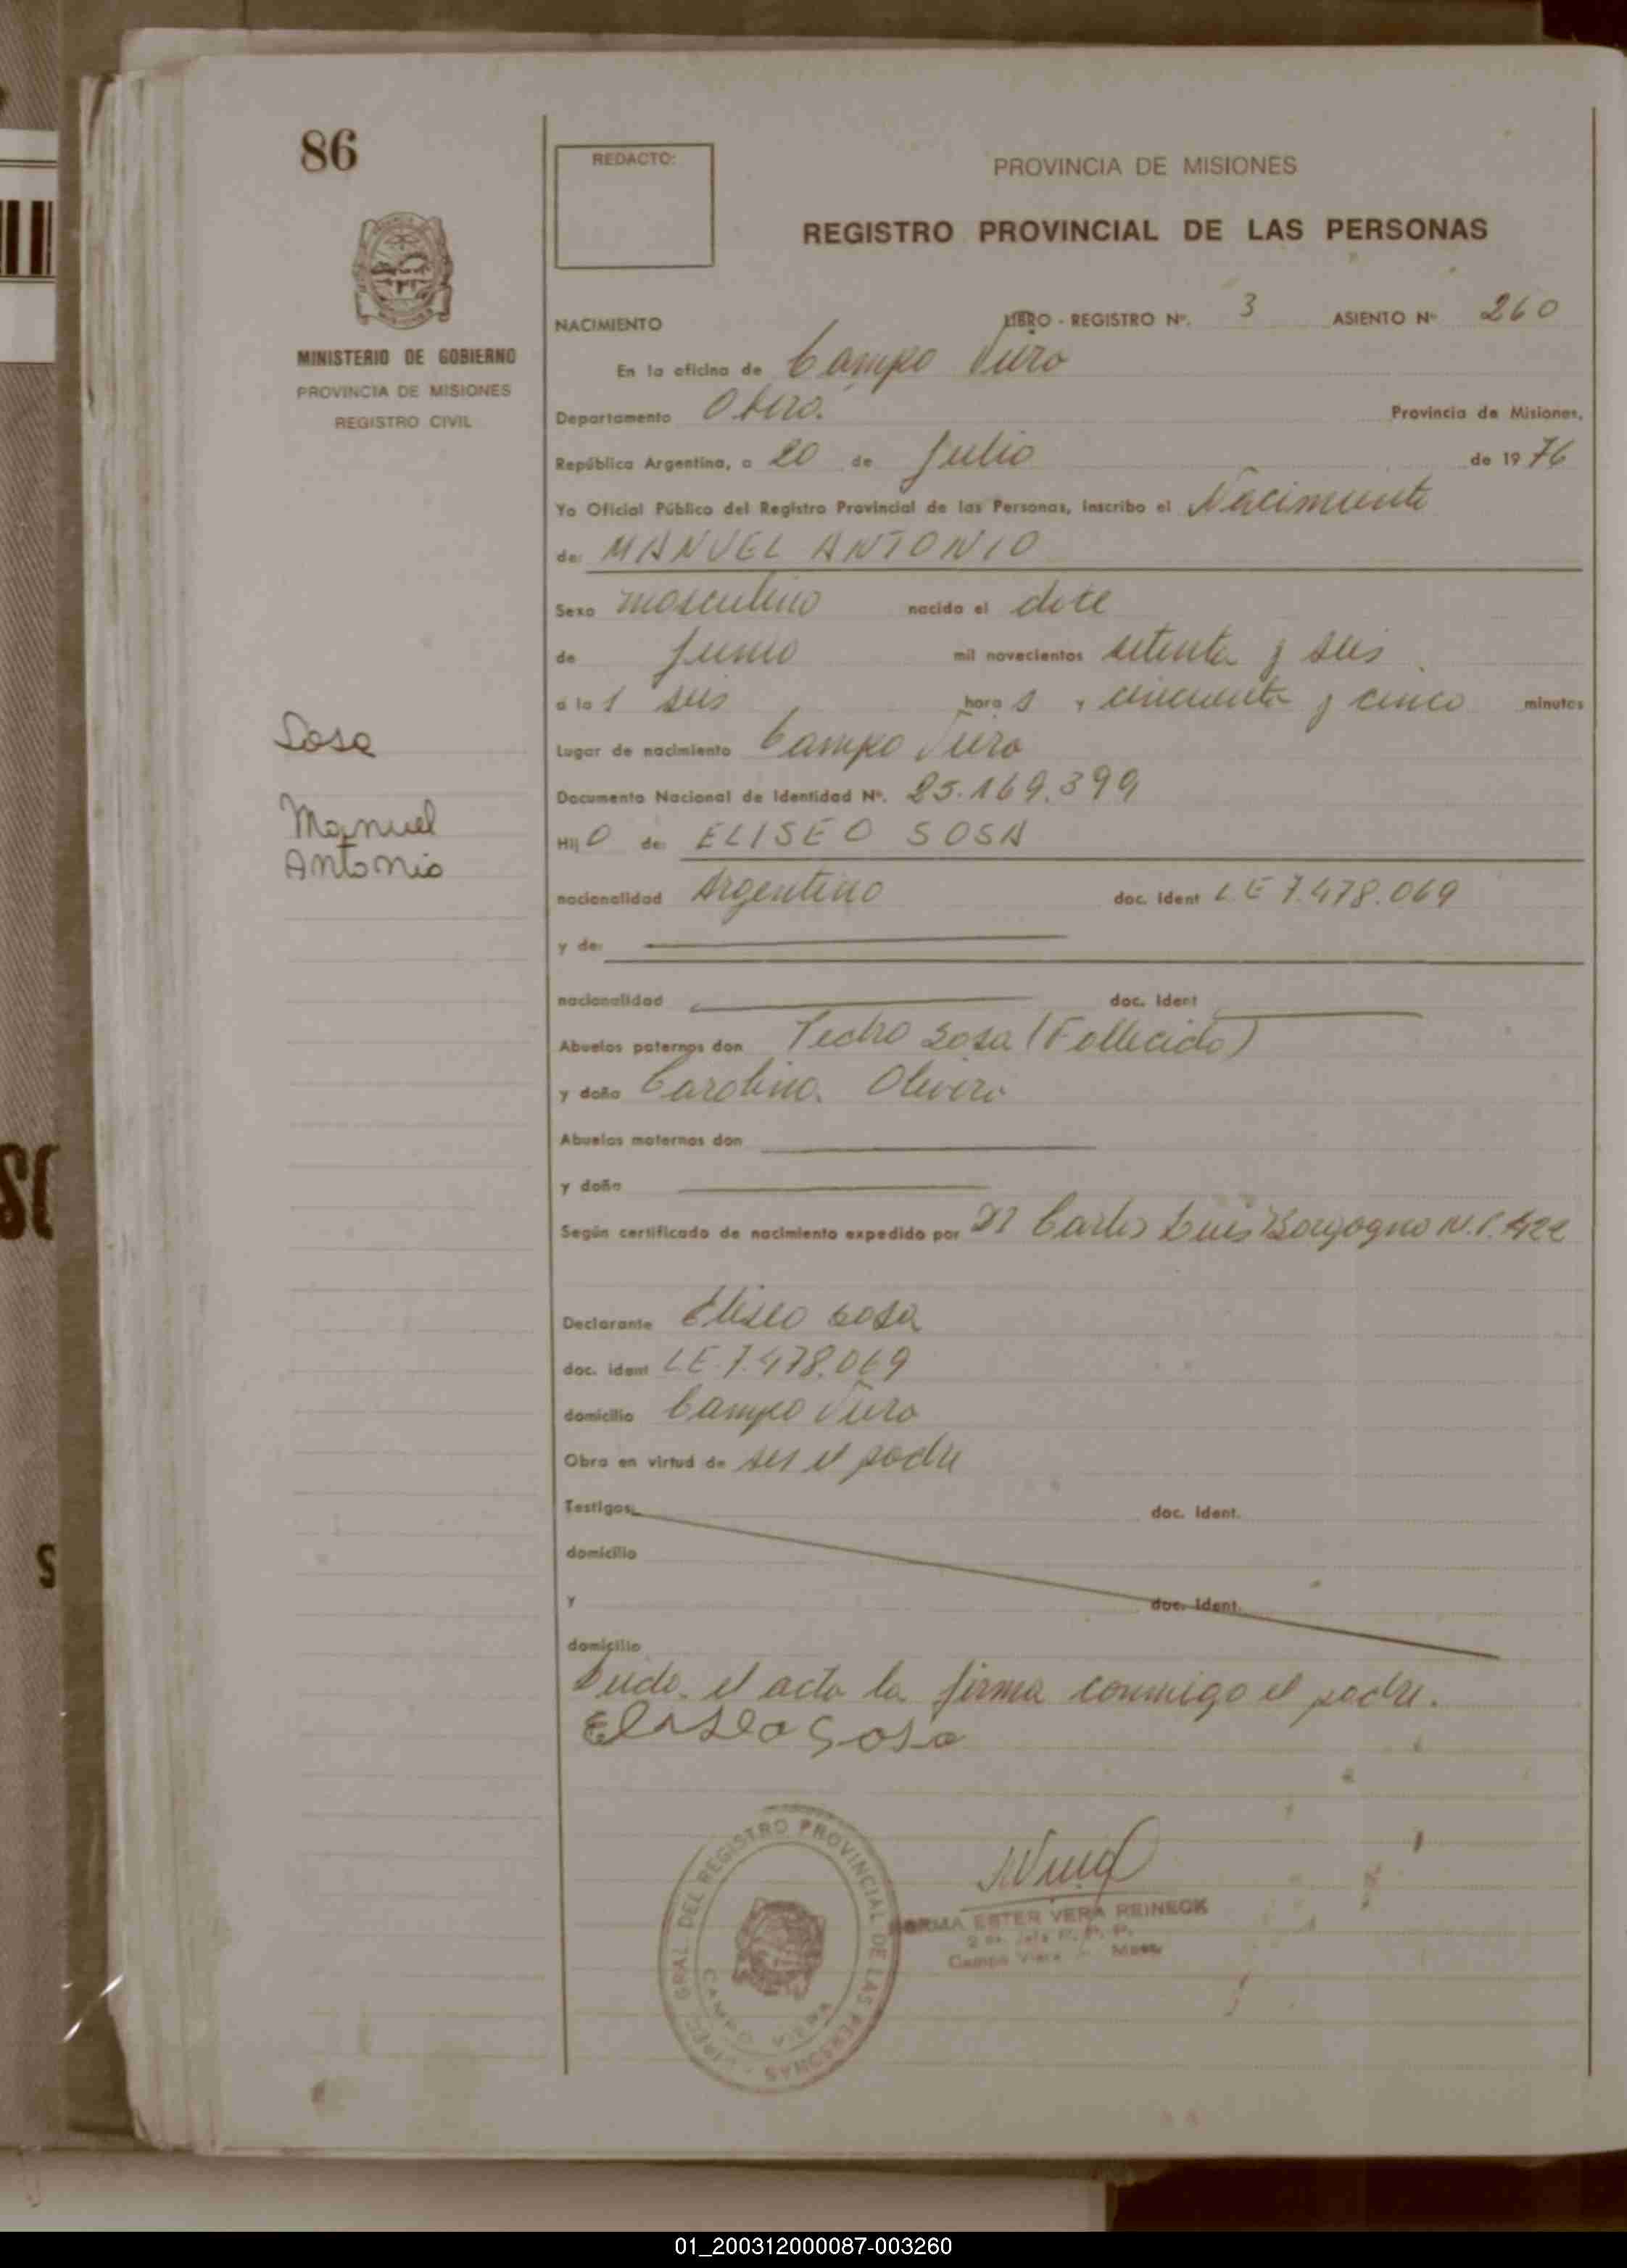 86
REDACTO:
PROVINCIA DE MISIONES
REGISTRO PROVINCIAL DE LAS PERSONAS
MINISTERIO DE GOBIERNO
PROVINCIA DE MISIONES
REGISTRO CIVIL
NACIMIENTO LIBRO - REGISTRO Nº. 3 ASIENTO Nº 260
En la oficina de Campo Viera
Departamento Oberá. Provincia de Misiones,
República Argentina, a 20 de Julio de 1976
Yo Oficial Público del Registro Provincial de las Personas, inscribo el Nacimiento
de: MANUEL ANTONIO
Sexo masculino nacido el doce
de Junio mil novecientos setenta y seis
a las seis horas y cincuenta y cinco minutos
Sosa
Lugar de nacimiento Campo Viera
Documento Nacional de Identidad Nº. 25.169.399
Manuel
Antonio
Hijo de: ELISEO SOSA
nacionalidad Argentino doc. ident L E 7.478.069
y de:
nacionalidad doc. ident
Abuelos paternos don Pedro Sosa (Fallecido)
y doña Carolina Olivera
Abuelos maternos don
y doña
Según certificado de nacimiento expedido por Dr Carlos Luis Borgogno
Declarante Eliseo Sosa
doc. ident L E 7.478.069
domicilio Campo Viera
Obra en virtud de ser el padre
Testigos: doc. ident.
domicilio
y doc. ident.
domicilio
Leida el acta la firma conmigo el padre.
Eliseo Sosa
DIREC. GRAL. DEL REGISTRO PROVINCIAL DE LAS PERSONAS
CAMPO VIERA
NORMA ESTER VERA REINECK
Campo Viera - Mnes.
SC
S
01_200312000087-003260